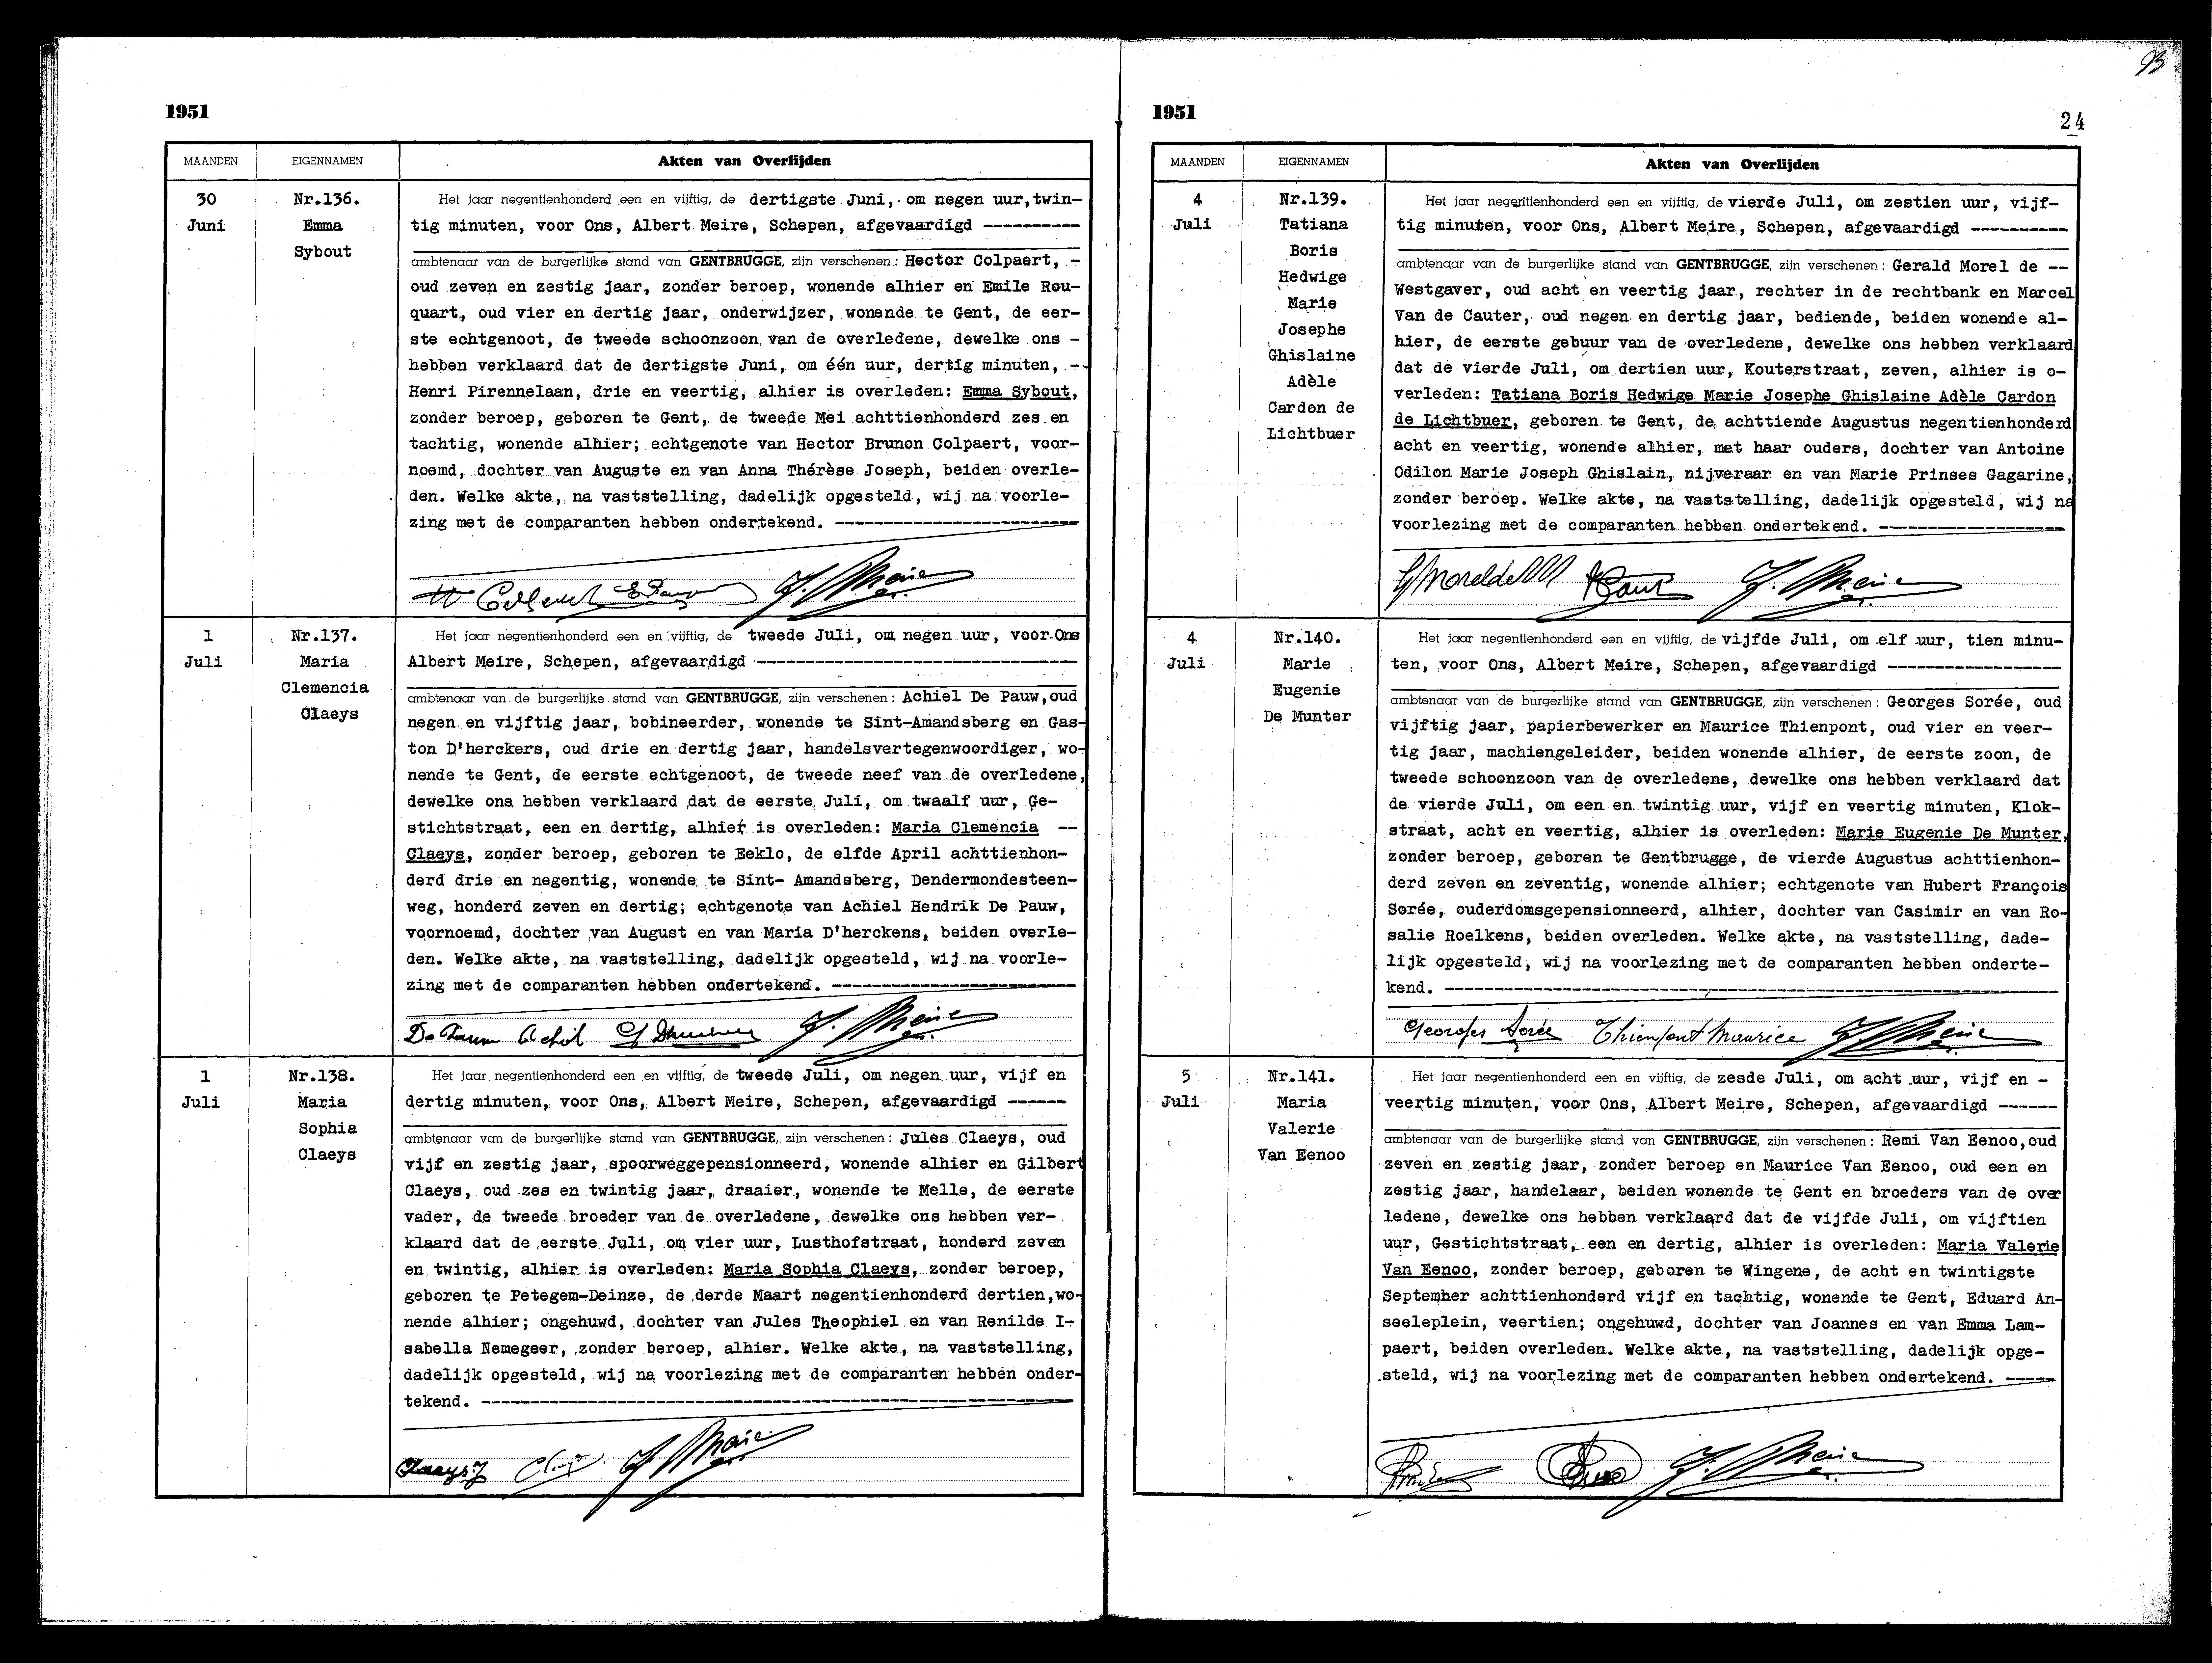 1951
MAANDEN EIGENNAMEN Akten van Overlijden
30
Juni
Nr.136.
Emma
Sybout
Het jaar negentienhonderd een en vijftig, de dertigste Juni, om negen uur,twin-
tig minuten, voor Ons, Albert Meire, Schepen, afgevaardigd ----------
ambtenaar van de burgerlijke stand van GENTBRUGGE, zijn verschenen : Hector Colpaert, -
oud zeven en zestig jaar, zonder beroep, wonende alhier en Emile Rou-
quart, oud vier en dertig jaar, onderwijzer, wonende te Gent, de eer-
ste echtgenoot, de tweede schoonzoon van de overledene, dewelke ons -
hebben verklaard dat de dertigste Juni, om één uur, dertig minuten, -
Henri Pirennelaan, drie en veertig, alhier is overleden: Emma Sybout,
zonder beroep, geboren te Gent, de tweede Mei achttienhonderd zes en
tachtig, wonende alhier; echtgenote van Hector Brunon Colpaert, voor-
noemd, dochter van Auguste en van Anna Thérèse Joseph, beiden overle-
den. Welke akte, na vaststelling, dadelijk opgesteld, wij na voorle-
zing met de comparanten hebben ondertekend. -------------------------
1
Juli
Nr.137.
Maria
Clemencia
Claeys
Het jaar negentienhonderd een en vijftig, de tweede Juli, om negen uur, voor Ons
Albert Meire, Schepen, afgevaardigd ---------------------------------
ambtenaar van de burgerlijke stand van GENTBRUGGE, zijn verschenen : Achiel De Pauw,oud
negen en vijftig jaar, bobineerder, wonende te Sint-Amandsberg en Gas-
ton D'herckers, oud drie en dertig jaar, handelsvertegenwoordiger, wo-
nende te Gent, de eerste echtgenoot, de tweede neef van de overledene,
dewelke ons hebben verklaard dat de eerste Juli, om twaalf uur, Ge-
stichtstraat, een en dertig, alhier is overleden: Maria Clemencia --
Claeys, zonder beroep, geboren te Eeklo, de elfde April achttienhon-
derd drie en negentig, wonende te Sint- Amandsberg, Dendermondesteen-
weg, honderd zeven en dertig; echtgenote van Achiel Hendrik De Pauw,
voornoemd, dochter van August en van Maria D'herckens, beiden overle-
den. Welke akte, na vaststelling, dadelijk opgesteld, wij na voorle-
zing met de comparanten hebben ondertekend. -------------------------
De Pauw Achiel
1
Juli
Nr.138.
Maria
Sophia
Claeys
Het jaar negentienhonderd een en vijftig, de tweede Juli, om negen uur, vijf en
dertig minuten, voor Ons, Albert Meire, Schepen, afgevaardigd ------
ambtenaar van de burgerlijke stand van GENTBRUGGE, zijn verschenen : Jules Claeys, oud
vijf en zestig jaar, spoorweggepensionneerd, wonende alhier en Gilbert
Claeys, oud zes en twintig jaar, draaier, wonende te Melle, de eerste
vader, de tweede broeder van de overledene, dewelke ons hebben ver-
klaard dat de eerste Juli, om vier uur, Lusthofstraat, honderd zeven
en twintig, alhier is overleden: Maria Sophia Claeys, zonder beroep,
geboren te Petegem-Deinze, de derde Maart negentienhonderd dertien,wo-
nende alhier; ongehuwd, dochter van Jules Theophiel en van Renilde I-
sabella Nemegeer, zonder beroep, alhier. Welke akte, na vaststelling,
dadelijk opgesteld, wij na voorlezing met de comparanten hebben onder-
tekend. -------------------------------------------------------------
Claeys J
93
1951
24
MAANDEN EIGENNAMEN Akten van Overlijden
4
Juli
Nr.139.
Tatiana
Boris
Hedwige
Marie
Josephe
Ghislaine
Adèle
Cardon de
Lichtbuer
Het jaar negentienhonderd een en vijftig, de vierde Juli, om zestien uur, vijf-
tig minuten, voor Ons, Albert Meire, Schepen, afgevaardigd ----------
ambtenaar van de burgerlijke stand van GENTBRUGGE, zijn verschenen : Gerald Morel de --
Westgaver, oud acht en veertig jaar, rechter in de rechtbank en Marcel
Van de Cauter, oud negen en dertig jaar, bediende, beiden wonende al-
hier, de eerste gebuur van de overledene, dewelke ons hebben verklaard
dat de vierde Juli, om dertien uur, Kouterstraat, zeven, alhier is o-
verleden: Tatiana Boris Hedwige Marie Josephe Ghislaine Adèle Cardon
de Lichtbuer, geboren te Gent, de achttiende Augustus negentienhonderd
acht en veertig, wonende alhier, met haar ouders, dochter van Antoine
Odilon Marie Joseph Ghislain, nijveraar en van Marie Prinses Gagarine,
zonder beroep. Welke akte, na vaststelling, dadelijk opgesteld, wij na
voorlezing met de comparanten hebben ondertekend. -------------------
4
Juli
Nr.140.
Marie
Eugenie
De Munter
Het jaar negentienhonderd een en vijftig, de vijfde Juli, om elf uur, tien minu-
ten, voor Ons, Albert Meire, Schepen, afgevaardigd ------------------
ambtenaar van de burgerlijke stand van GENTBRUGGE, zijn verschenen : Georges Sorée, oud
vijftig jaar, papierbewerker en Maurice Thienpont, oud vier en veer-
tig jaar, machiengeleider, beiden wonende alhier, de eerste zoon, de
tweede schoonzoon van de overledene, dewelke ons hebben verklaard dat
de vierde Juli, om een en twintig uur, vijf en veertig minuten, Klok-
straat, acht en veertig, alhier is overleden: Marie Eugenie De Munter,
zonder beroep, geboren te Gentbrugge, de vierde Augustus achttienhon-
derd zeven en zeventig, wonende alhier; echtgenote van Hubert François
Sorée, ouderdomsgepensionneerd, alhier, dochter van Casimir en van Ro-
salie Roelkens, beiden overleden. Welke akte, na vaststelling, dade-
lijk opgesteld, wij na voorlezing met de comparanten hebben onderte-
kend. ---------------------------------------------------------------
Georges Sorée Thienpont Maurice
5
Juli
Nr.141.
Maria
Valerie
Van Eenoo
Het jaar negentienhonderd een en vijftig, de zesde Juli, om acht uur, vijf en -
veertig minuten, voor Ons, Albert Meire, Schepen, afgevaardigd ------
ambtenaar van de burgerlijke stand van GENTBRUGGE, zijn verschenen : Remi Van Eenoo,oud
zeven en zestig jaar, zonder beroep en Maurice Van Eenoo, oud een en
zestig jaar, handelaar, beiden wonende te Gent en broeders van de over
ledene, dewelke ons hebben verklaard dat de vijfde Juli, om vijftien
uur, Gestichtstraat, een en dertig, alhier is overleden: Maria Valerie
Van Eenoo, zonder beroep, geboren te Wingene, de acht en twintigste
September achttienhonderd vijf en tachtig, wonende te Gent, Eduard An-
seeleplein, veertien; ongehuwd, dochter van Joannes en van Emma Lam-
paert, beiden overleden. Welke akte, na vaststelling, dadelijk opge-
steld, wij na voorlezing met de comparanten hebben ondertekend. -----